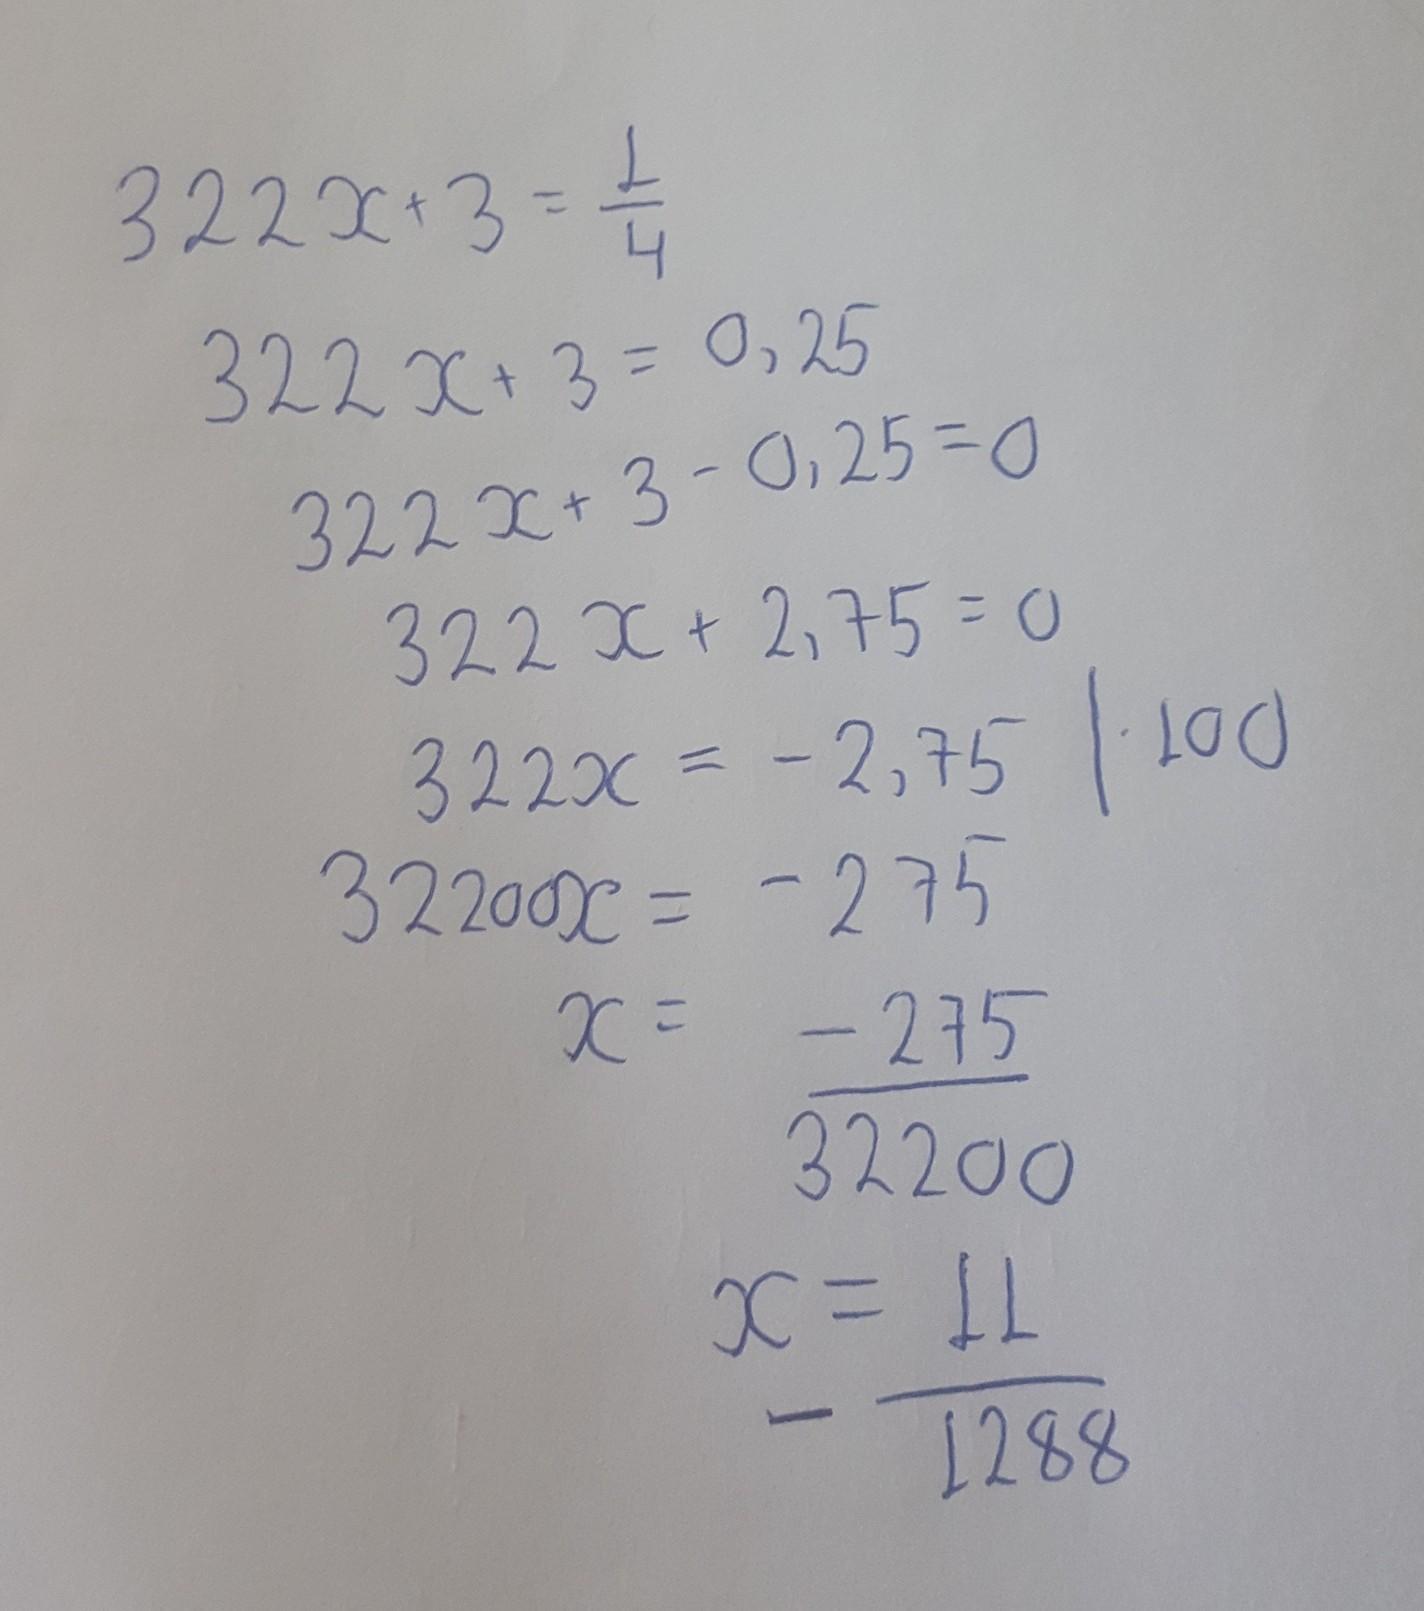 322x+3=1/4
322x+3=0,25
322x+3-0,25=0
322x+2,75=0
322x=-2,75 |·100
32200x=-275
x=-275/32200
x=-11/1288